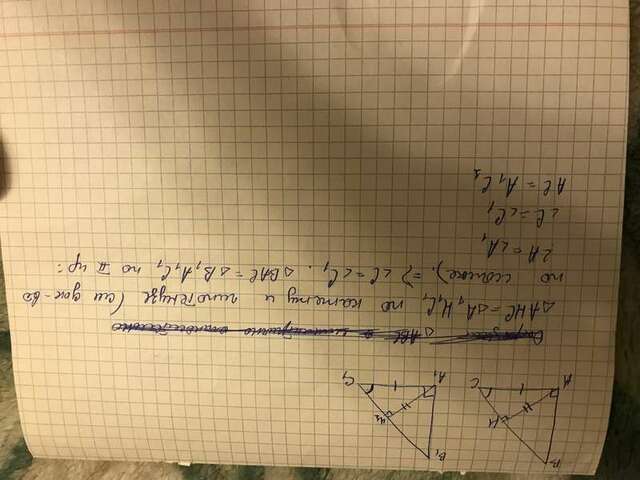 B
H
A
C
B₁
H₁
A₁
C₁
△ABC
△AHC=△A₁H₁C₁ по катету и гипотенузе (см док-во
по ссылке). => ∠C=∠C₁. △BAC=△B₁A₁C₁ по II пр:
∠A=∠A₁
∠C=∠C₁
AC=A₁C₁